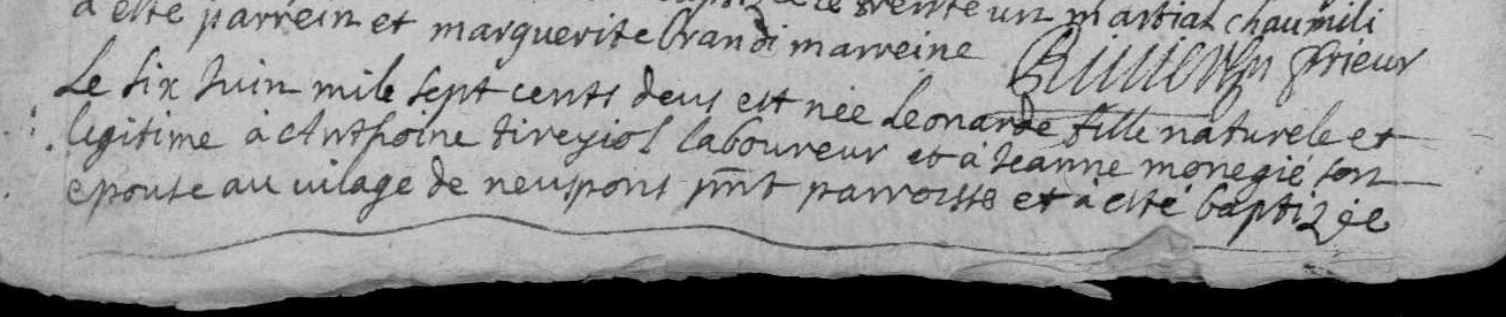 a esté parrein et marguerite brandi marreine
le trente un martial chaumili
prieur
Le six Juin mile sept cents deus est née Leonarde fille naturele et
legitime à Anthoine tireyiol laboureur et à Jeanne monegié son
epouse au vilage de neuspons pnt parroisse et à esté baptizée